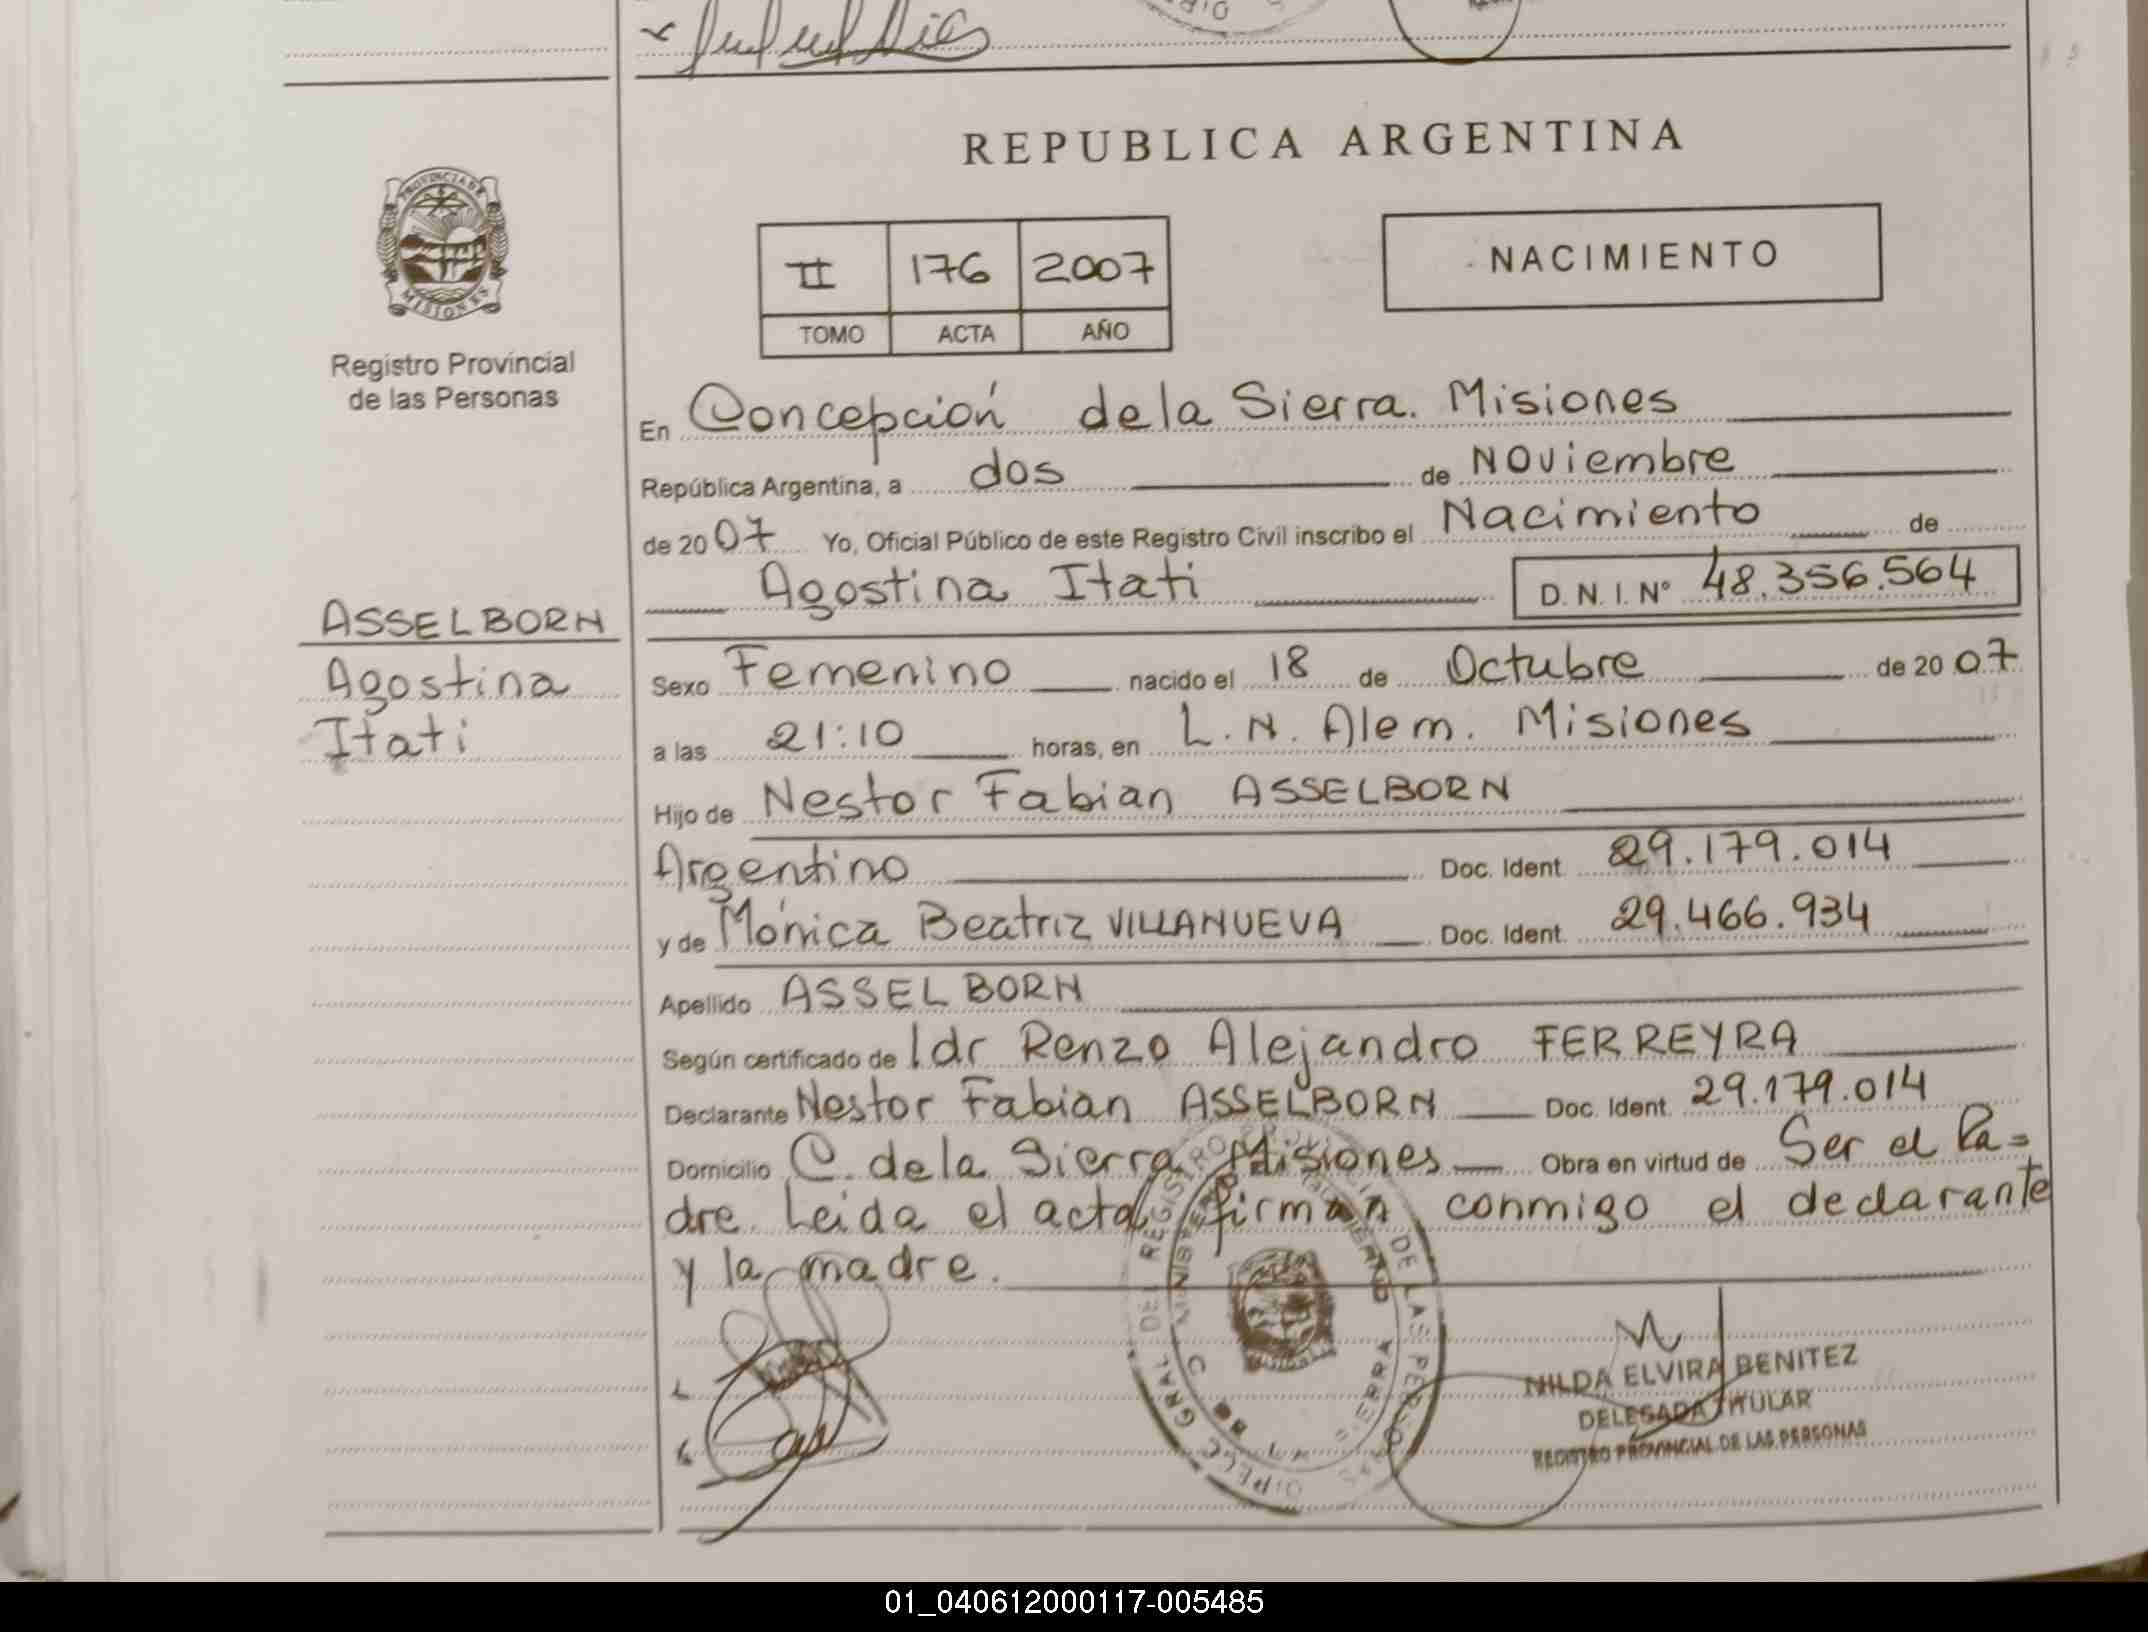 REPUBLICA ARGENTINA
PROVINCIA DE
MISIONES
Registro Provincial
de las Personas
II 176 2007
TOMO ACTA AÑO
NACIMIENTO
En Concepción de la Sierra. Misiones
República Argentina, a dos de Noviembre
de 2007 Yo, Oficial Público de este Registro Civil inscribo el Nacimiento de
Agostina Itati D. N. I. Nº 48.356.564
ASSELBORN
Agostina
Itati
Sexo Femenino nacido el 18 de Octubre de 2007
a las 21:10 horas, en L. N. Alem. Misiones
Hijo de Nestor Fabian ASSELBORN
Argentino Doc. Ident. 29.179.014
y de Mónica Beatriz VILLANUEVA Doc. Ident. 29.466.934
Apellido ASSELBORN
Según certificado de ldr Renzo Alejandro FERREYRA
Declarante Nestor Fabian ASSELBORN Doc. Ident. 29.179.014
Domicilio C. de la Sierra Misiones Obra en virtud de Ser el Pa=
dre. Leida el acta firman conmigo el declarante
y la madre.
NILDA ELVIRA BENITEZ
DELEGADA TITULAR
REGISTRO PROVINCIAL DE LAS PERSONAS
01_040612000117-005485